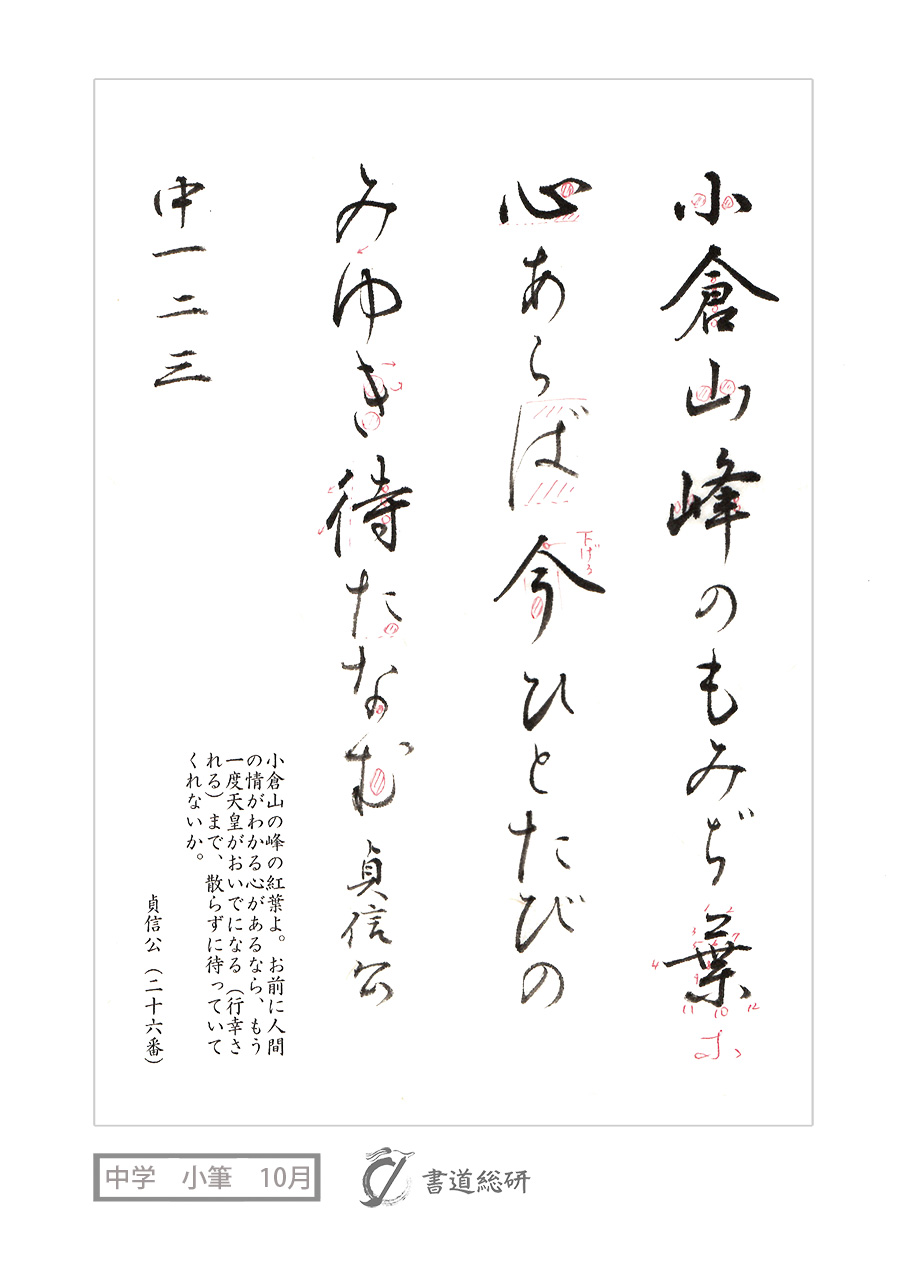 小倉山峰のもみぢ葉
心あらば今ひとたびの
みゆき待たなむ 貞信公
中一二三
下げる
1 2 3 4 5 6 7 8 9 10 11 12
小倉山の峰の紅葉よ。お前に人間
の情がわかる心があるなら、もう
一度天皇がおいでになる（行幸さ
れる）まで、散らずに待っていて
くれないか。
貞信公（二十六番）
中学 小筆 10月
書道総研